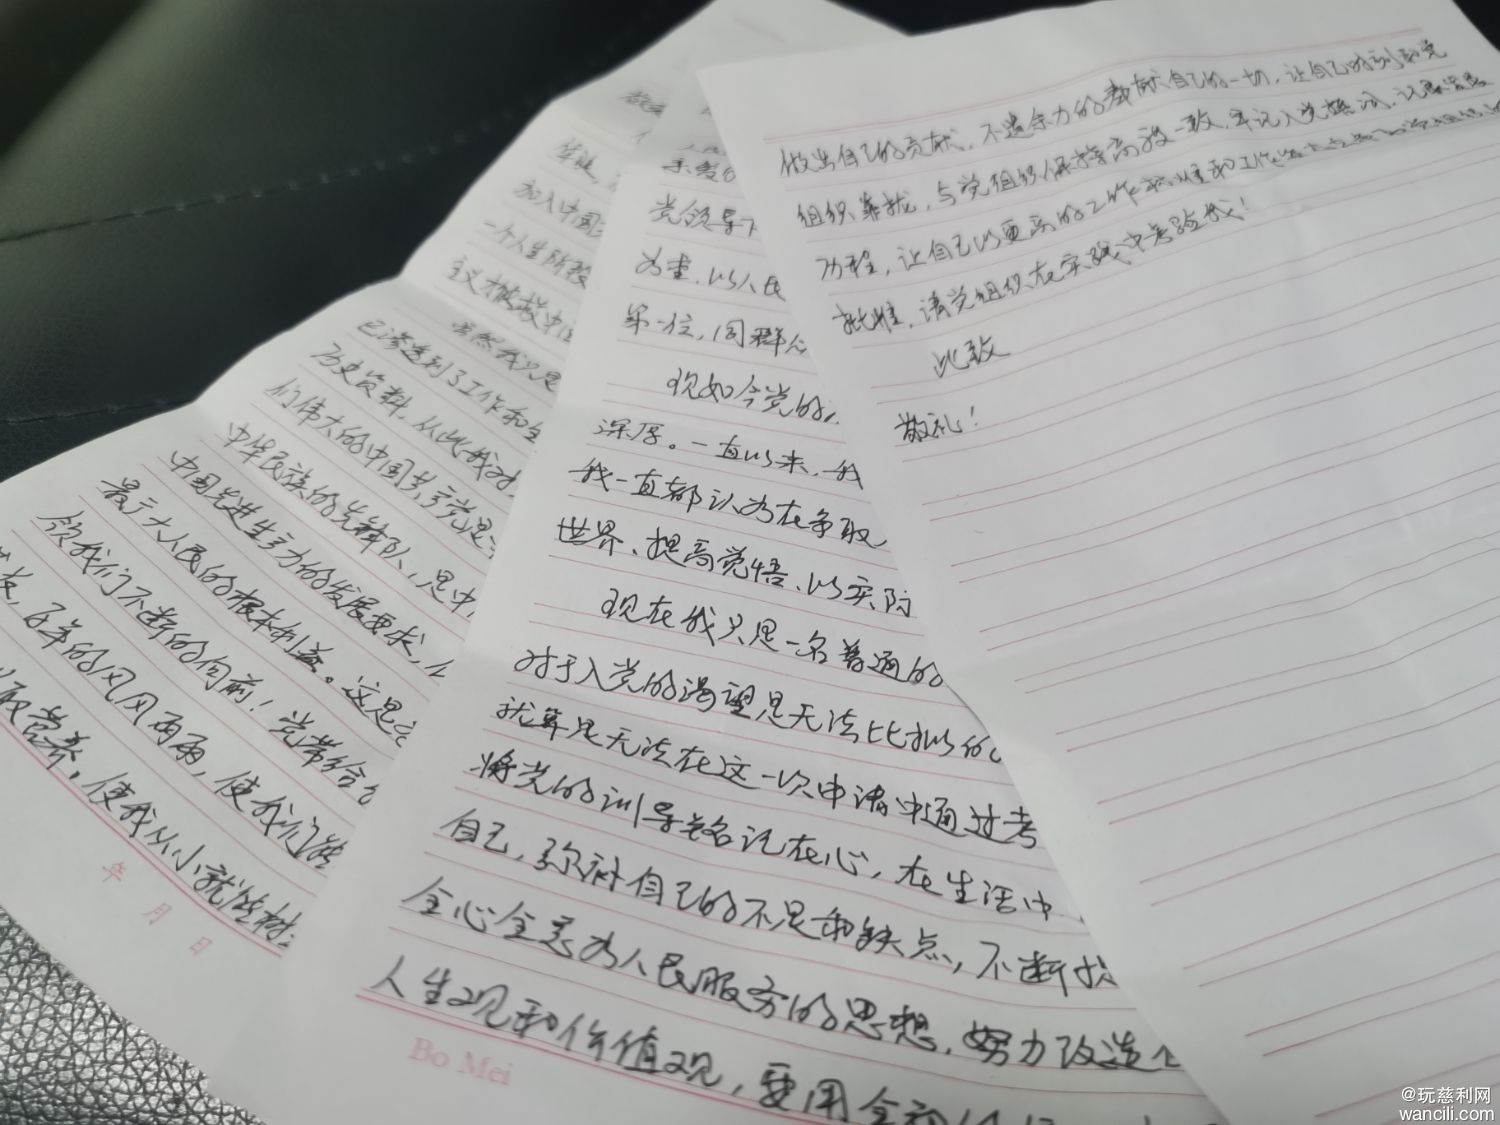 华诞，
加入中国
一个人生阶段
主义接班
虽然我只是
已渗透到了工作和生
历史资料，从此我对
们伟大的中国共产党是
中华民族的先锋队，是中
中国先进生产力的发展要求，
最广大人民的根本利益。这是
领我们不断的向前！党带给
百年的风风雨雨，使我们能
取营养。使我从小就能树
年 月 日
党领导下
为重，以人民
第一位，同群众
现如今党的
深厚。一直以来，我
我一直都认为在争取
世界、提高觉悟、以实际
现在我只是一名普通的
对于入党的渴望是无法比拟的
就算是无法在这一次申请中通过考
将党的训导铭记在心，在生活中
自己，弥补自己的不足和缺点，不断
全心全意为人民服务的思想，努力改造
人生观和价值观，要用全
Bo Mei
做出自己的贡献，不遗余力的奉献自己的一切，让自己时刻向党
组织靠拢，与党组织保持高度一致，牢记入党誓词，
历程，让自己以更高的工作
批准，请党组织在实践中考验我！
此致
敬礼！
@玩慈利网
wancili.com